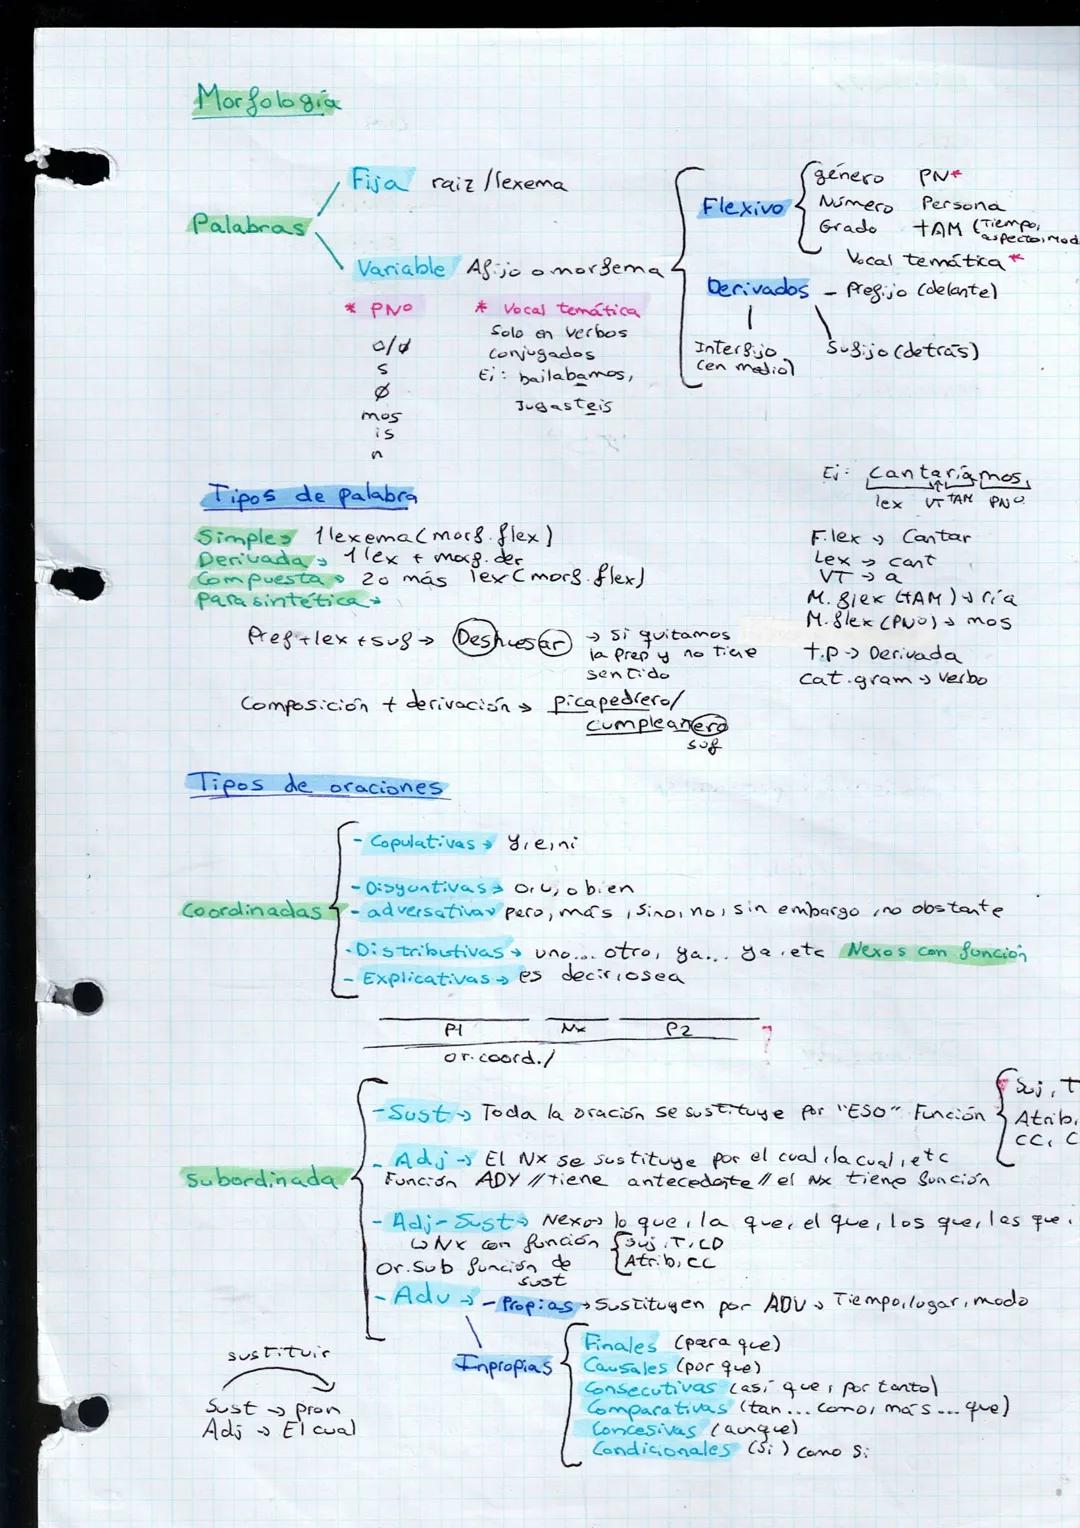 Morfología
Palabras
Fija raiz/lexema
Variable Afijo o morfema
Flexivo
género PN*
Número Persona
Grado tAM (Tiempo,
aspecto, Mod
Vocal temática *
Derivados - Prefijo (delante)
Interfijo
(en medio)
Sufijo (detrás)
* PNº
o/ø
s
ø
mos
is
n
* Vocal temática
Solo en verbos
conjugados
Ej: bailabamos,
Jugasteis
Ej: Cantaríamos,
lex VT TAM PNº
F.lex → Cantar
Lex → cant
VT → a
M. flex (tAM) → ría
M. flex (PNº) → mos
t.p → Derivada
cat.gram → verbo
Tipos de palabra
Simple → 1 lexema (morf. flex)
Derivada → 1 lex + morf. der
Compuesta → 2 o más lex (morf. flex)
Parasintética →
Pref + lex + suf → Deshuesar → si quitamos
la prep y no tiene
sentido
Composición + derivación → picapedrero/
cumpleañero
suf
Tipos de oraciones
Coordinadas
- Copulativas → y, e, ni
- Disyuntivas → o, u, o bien
- adversativas pero, más, sino, no, sin embargo, no obstante
- Distributivas → uno... otro, ya... ya, etc Nexos con función
- Explicativas → es decir, o sea
P1 Nx P2 ?
or. coord./
Subordinada
- Sust → Toda la oración se sustituye por "ESO" Función
Suj, T
Atrib,
CC, C
- Adj → El Nx se sustituye por el cual, la cual, etc
Función ADY // tiene antecedente // el Nx tiene función
- Adj-Sust → Nexos lo que, la que, el que, los que, las que.
↳ Nx con función
Suj, T, CD
Atrib, CC
Or. Sub función de
sust
- Adv → - Propias → Sustituyen por ADV → Tiempo, lugar, modo
Inpropias
Finales (para que)
Causales (por que)
Consecutivas (así que, por tanto)
Comparativas (tan... como, más... que)
Concesivas (aunque)
Condicionales (Si) como si
sustituir
Sust → pron
Adj → El cual